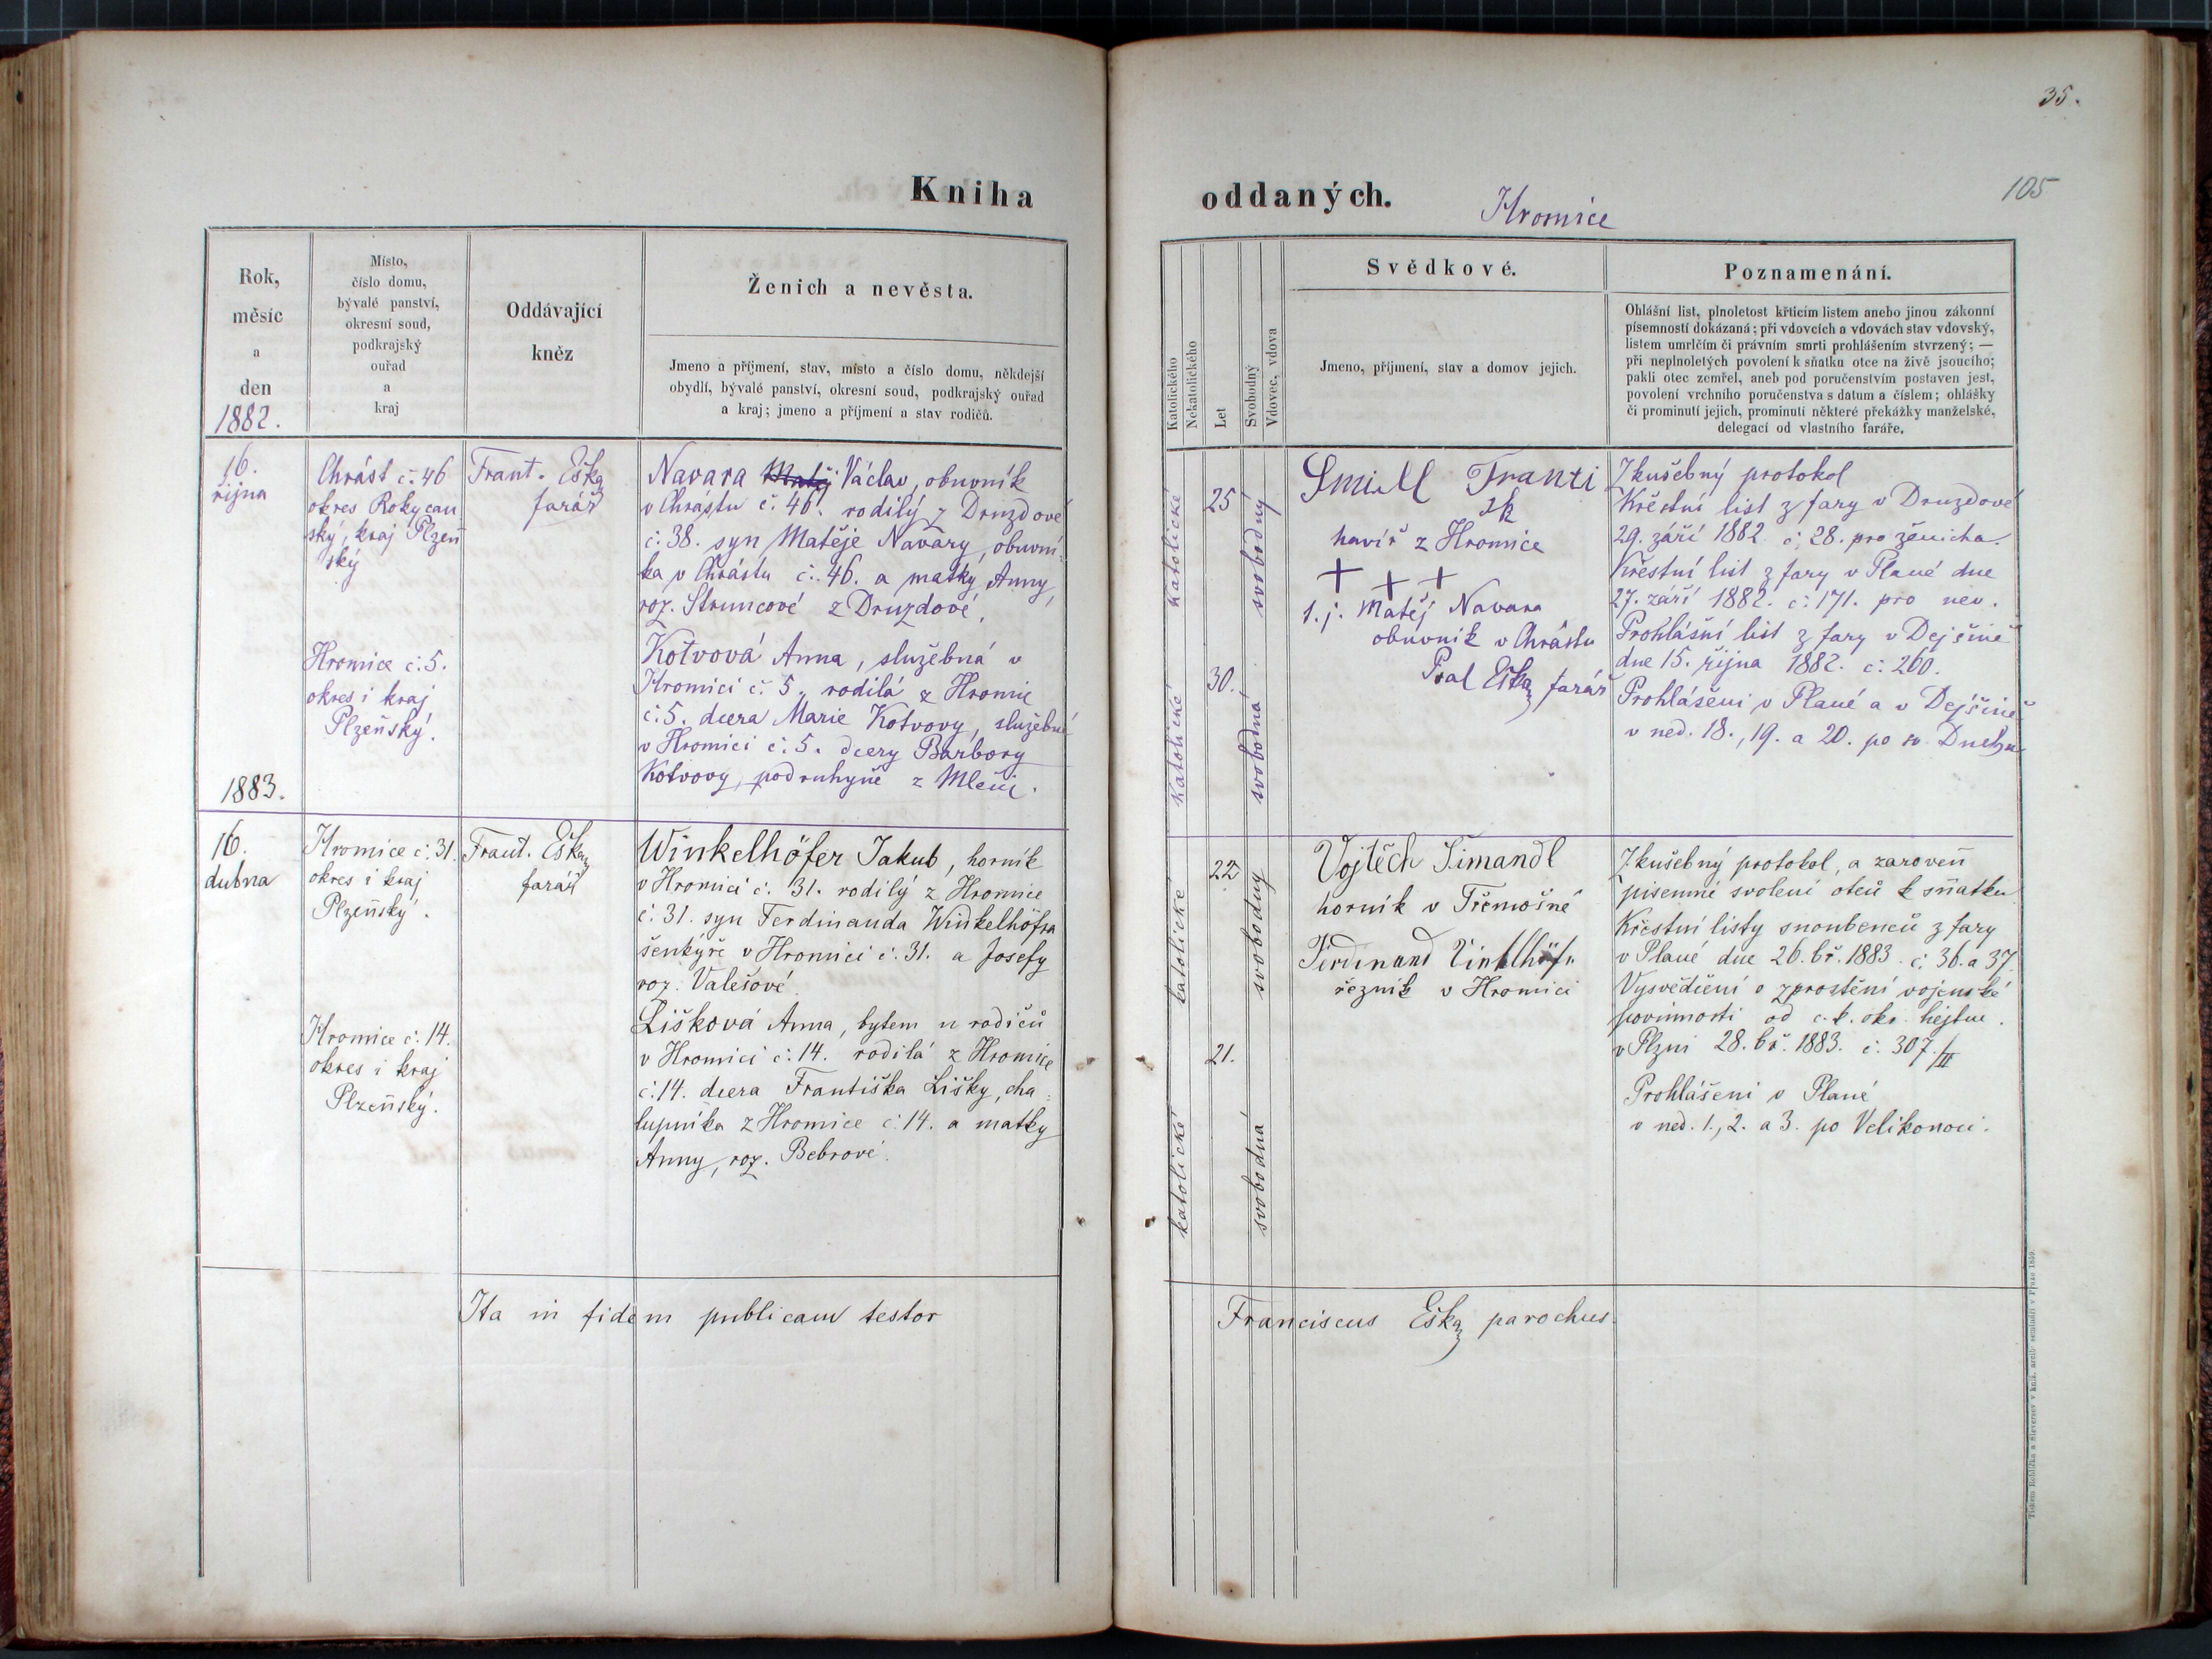 35.
105
Kniha
oddaných.
Hromice
Rok,
měsíc
a
den
1882.
Místo,
číslo domu,
bývalé panství,
okresní soud,
podkrajský
ouřad
a
kraj
Oddávající
kněz
Ženich a nevěsta.
Jmeno a příjmení, stav, místo a číslo domu, někdejší
obydlí, bývalé panství, okresní soud, podkrajský ouřad
a kraj; jmeno a příjmení a stav rodičů.
Katolického
Nekatolického
Let
Svobodný
Vdovec, vdova
Svědkové.
Jmeno, příjmení, stav a domov jejich.
Poznamenání.
Ohlášní list, plnoletost křticím listem anebo jinou zákonní
písemností dokázaná; při vdovcích a vdovách stav vdovský,
listem umrlčím či právním smrti prohlášením stvrzený; —
při neplnoletých povolení k sňatku otce na živě jsoucího;
pakli otec zemřel, aneb pod poručenstvím postaven jest,
povolení vrchního poručenstva s datum a číslem; ohlášky
či prominutí jejich, prominutí některé překážky manželské,
delegací od vlastního faráře.
16.
října
Chrást č. 46
okres Rokycan
ský, kraj Plzeň
ský
Frant. Eška
farář
Navara Matěj Václav, obuvník
v Chrástu č. 46. rodilý z Druzdové
č. 38. syn Matěje Navary, obuvní-
ka v Chrástu č. 46. a matky Anny,
roz. Struncové z Druzdové.
Hromice č. 5.
okres i kraj
Plzeňský.
Kotvová Anna, služebná v
Hromici č. 5. rodilá z Hromic
č. 5. dcera Marie Kotvovy, služebné
v Hromici č. 5. dcery Barbory
Kotvovy, podruhyně z Mlčic.
katolické
25
svobodný
katolické
30.
svobodná
havíř z Hromice
+ + +
t. j. Matěj Navara
obuvník v Chrástu
Psal Eška farář
Zkušebný protokol
Křestní list z fary v Druzdové
29. září 1882 č. 28. pro ženicha.
Křestní list z fary v Plané dne
27. září 1882. č. 171. pro nev.
Prohlášní list z fary v Dejšině
dne 15. října 1882. č. 260.
Prohlášeni v Plané a v Dejšině
v ned. 18., 19. a 20. po sv. Duchu
1883.
16.
dubna
Hromice č. 31.
okres i kraj
Plzeňský.
Frant. Eška
farář
Winkelhöfer Jakub, horník
v Hromici č. 31. rodilý z Hromice
č. 31. syn Ferdinanda Winkelhöfra
šenkýře v Hromici č. 31. a Josefy
roz. Valešové.
Hromice č. 14.
okres i kraj
Plzeňský.
Lišková Anna, bytem u rodičů
v Hromici č. 14. rodilá z Hromice
č. 14. dcera Františka Lišky, cha-
lupníka z Hromice č. 14. a matky
Anny, roz. Bebrové.
katolické
22
svobodný
katolické
21.
svobodná
Vojtěch Šimandl
horník v Třemošné
Ferdinand
řezník v Hromici
Zkušebný protokol, a zaroveň
písemné svolení otců k sňatku
Křestní listy snoubenců z fary
v Plané dne 26. bř. 1883. č. 36. a 37.
Vysvědčení o zproštění vojenské
povinnosti od c. k. okr. hejtm.
v Plzni 28. bř. 1883. č. 307/II
Prohlášeni v Plané
v ned. 1., 2. a 3. po Velikonoci.
Ita in fidem publicam testor
Franciscus Eška parochus.